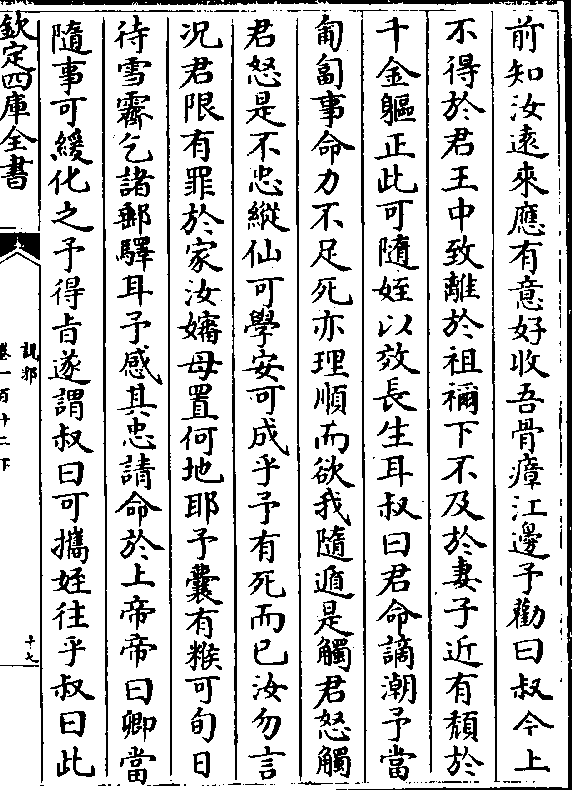 前知汝逺來應有意好收吾骨瘴江邊予勸曰叔今上
不得於君王中致離於祖禰下不及於妻子近有頽於
千金軀正此可隨姪以效長生耳叔曰君命謫潮予當
匍匐事命力不足死亦理順而欲我隨遁是觸君怒觸
君怒是不忠縱仙可學安可成乎予有死而已汝勿言
况君限有罪於家汝嬸母置何地耶予囊有糇可旬日
待雪霽乞諸郵驛耳予感其忠請命於上帝帝曰卿當
隨事可緩化之予得㫖遂謂叔曰可攜姪往乎叔曰此
欽定四庫全書
說郛
卷一百十二下
十七